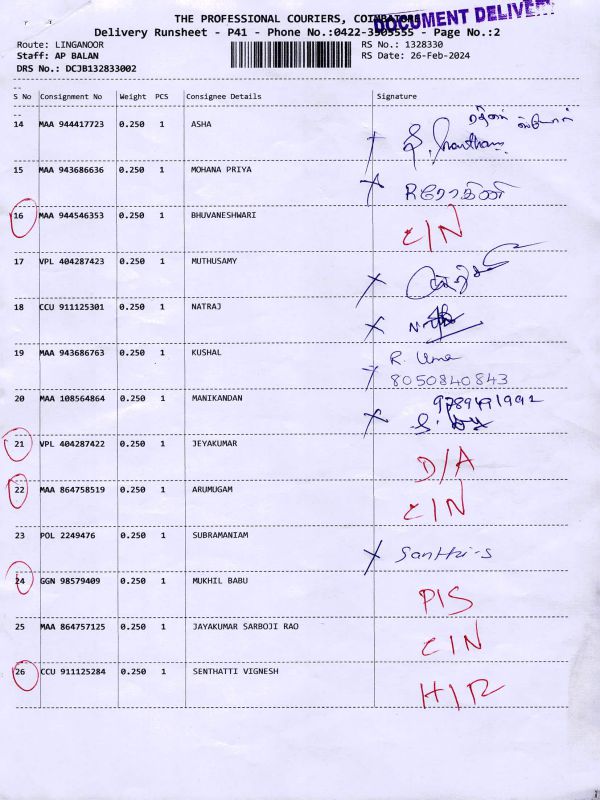 THE PROFESSIONAL COURIERS, COIMBATORE
DOCUMENT DELIVERY
Delivery Runsheet - P41 - Phone No.:0422-3505555 - Page No.:2
Route: LINGANOOR RS No.: 1328330
Staff: AP BALAN RS Date: 26-Feb-2024
DRS No.: DCJB132833002
S No Consignment No Weight PCS Consignee Details Signature
14 MAA 944417723 0.250 1 ASHA
15 MAA 943686636 0.250 1 MOHANA PRIYA R ரோகிணி
16 MAA 944546353 0.250 1 BHUVANESHWARI C/N
17 VPL 404287423 0.250 1 MUTHUSAMY
18 CCU 911125301 0.250 1 NATRAJ
19 MAA 943686763 0.250 1 KUSHAL R. Uma
8050840843
20 MAA 108564864 0.250 1 MANIKANDAN 9789491992
21 VPL 404287422 0.250 1 JEYAKUMAR D/A
22 MAA 864758519 0.250 1 ARUMUGAM C/N
23 POL 2249476 0.250 1 SUBRAMANIAM
24 GGN 98579409 0.250 1 MUKHIL BABU P/S
25 MAA 864757125 0.250 1 JAYAKUMAR SARBOJI RAO C/N
26 CCU 911125284 0.250 1 SENTHATTI VIGNESH H/R